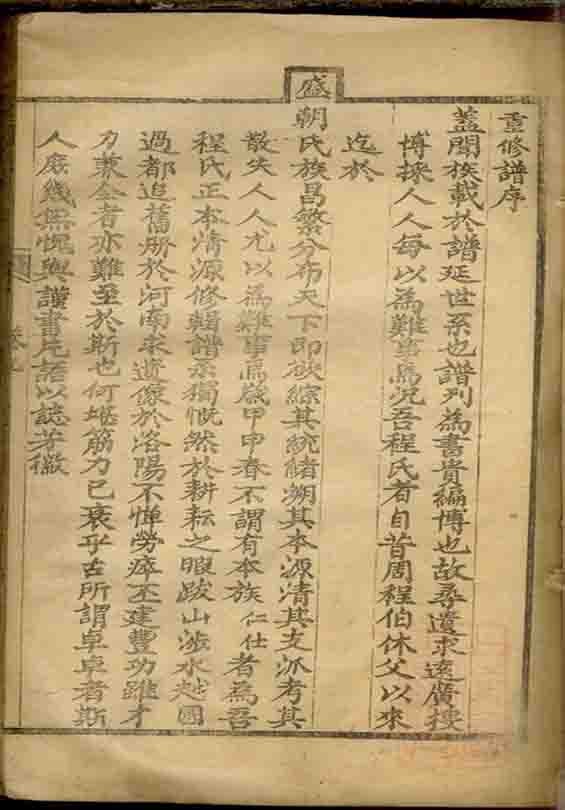 重修譜序
蓋聞族載於譜延世系也譜列為書貴編博也故尋遺求遠廣搜
博採人人每以為難事焉況吾程氏者自昔周程伯休父以來
迄於
盛朝氏族昌繁分布天下即欲綜其統緒溯其本源清其支派考其
散失人人尤以為難事焉歲甲申春不謂有本族仁仕者為吾
程氏正本清源修輯譜系獨慨然於耕耘之暇跋山涉水越國
過都追舊冊於河南求遺像於洛陽不憚勞瘁丕建豐功雖才
力兼全者亦難至於斯也何堪筋力已衰乎古所謂卓卓者斯
人庶幾無愧與謹書片語以誌芳徽